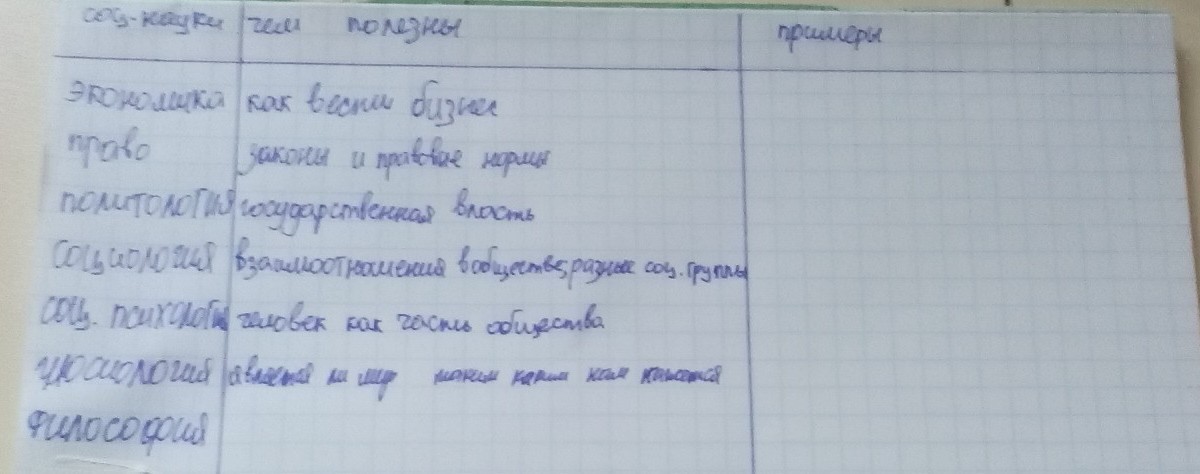 соц-науки чем полезны примеры
экономика как вести бизнес
право законы и правовые нормы
политология государственная власть
социология взаимоотношения в обществе, разные соц. группы
соц. психология человек как часть общества
гносиология является ли мир таким каким нам кажется
философия